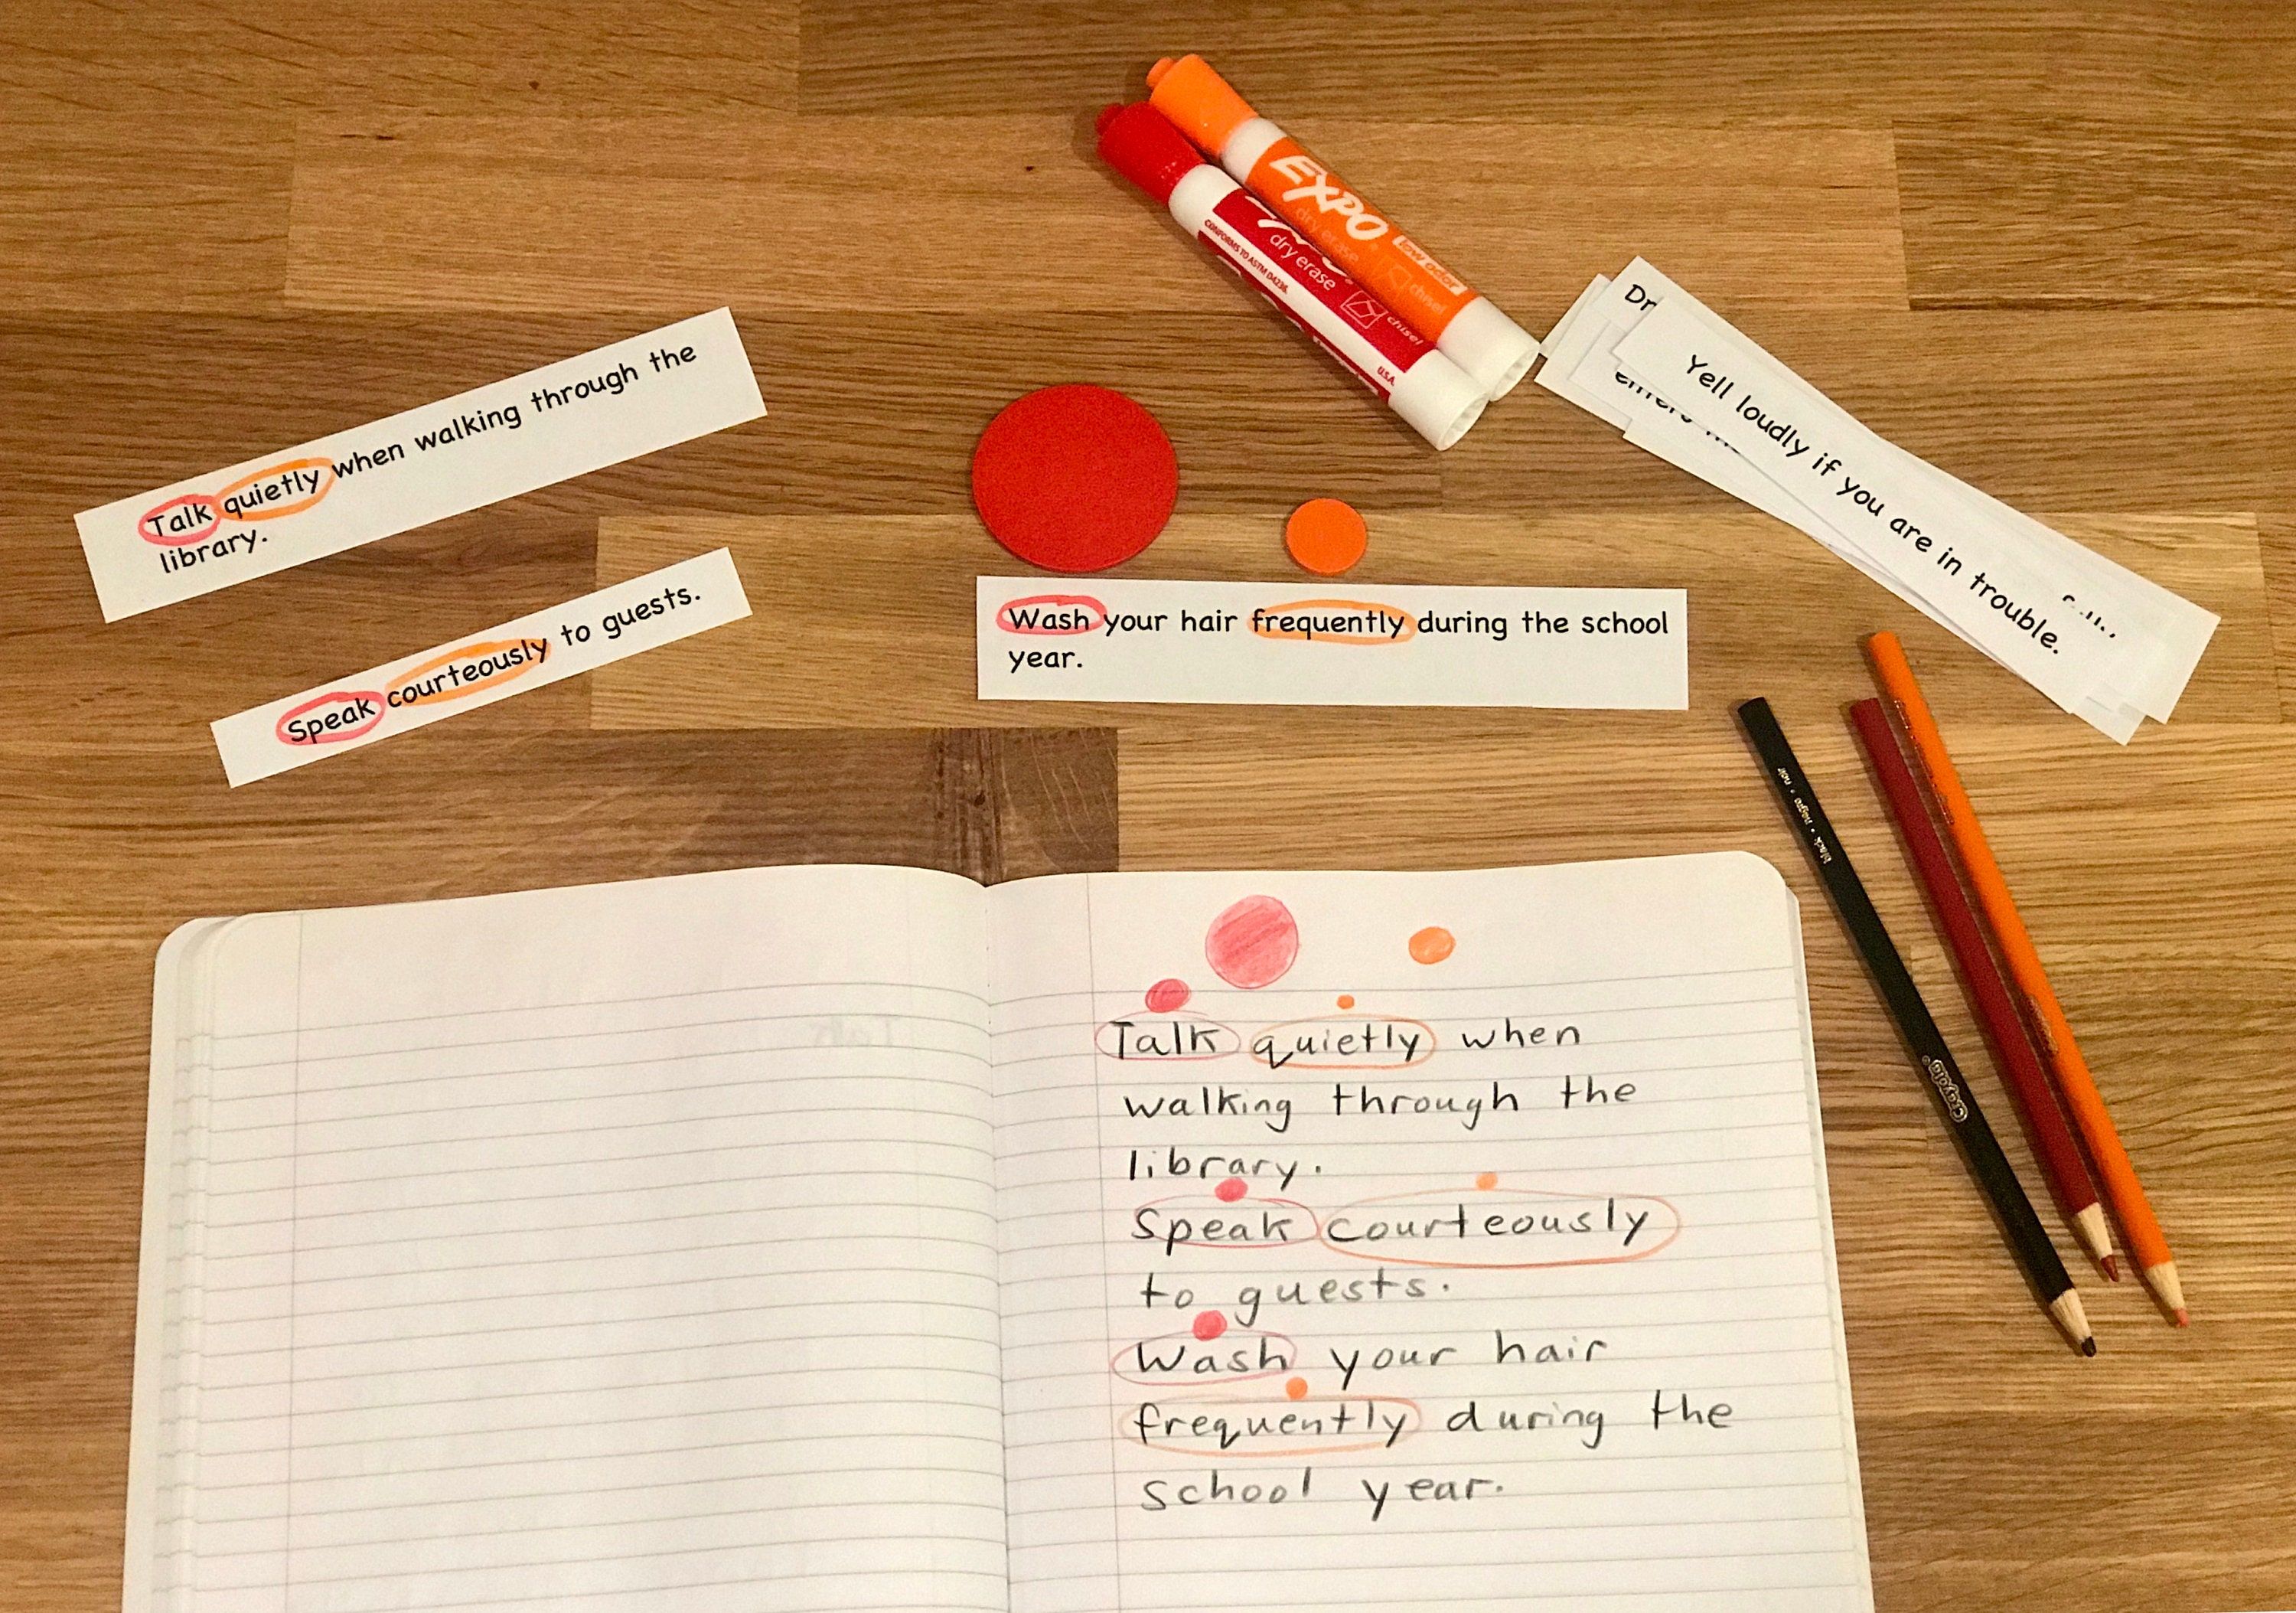 EXPO
low odor
dry erase
chisel
dry erase
CONFORMS TO ASTM D4236.
chisel
U.S.A.
Talk quietly when walking through the
library.
Speak courteously to guests.
Wash your hair frequently during the school
year.
Dr
Yell loudly if you are in trouble.
black • negro • noir
Crayola
Talk quietly when
walking through the
library.
Speak courteously
to guests.
Wash your hair
frequently during the
school year.